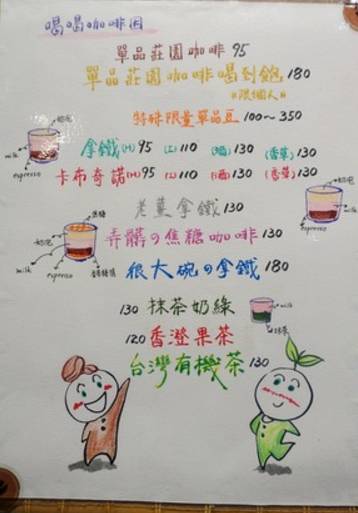 喝喝咖啡因
單品莊園咖啡 95
單品莊園咖啡喝到飽 180
*限個人*
特殊限量單品豆 100~350
奶泡
milk
espresso
拿鐵(M)95 (L)110 (酒)130 (香草)130
卡布奇諾(M)95 (L)110 (酒)130 (香草)130
奶泡
milk
espresso
老薑拿鐵 130
焦糖
奶泡
milk
espresso
香草糖漿
弄髒の焦糖咖啡 130
很大碗の拿鐵 180
130 抹茶奶綠
milk
抹茶
120 香澄果茶
台灣有機茶 130